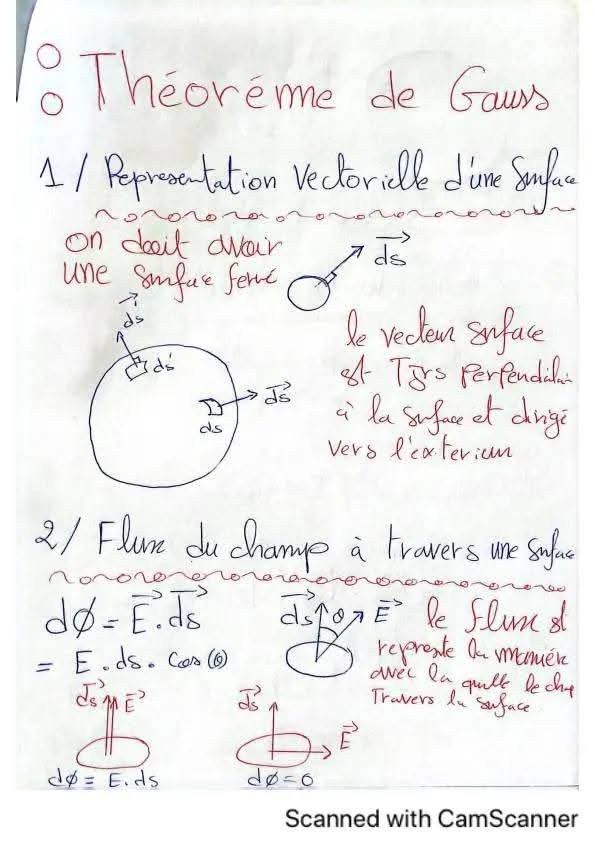 Théoréme de Gauss
1/ Representation Vectorielle d'une Surface
on doit avoir
une surface fermé
ds
ds
ds'
le vecteur surface
est Tjrs perpendiculaire
ds
ds
à la surface et dirigé
vers l'exterieur
2/ Flux du champ à travers une surface
dφ = E . ds
ds θ E
le flux est
= E . ds . cos(θ)
represte la maniére
avec la quelle le chp
Travers la surface
ds E
ds
E
dφ = E . ds
dφ = 0
Scanned with CamScanner